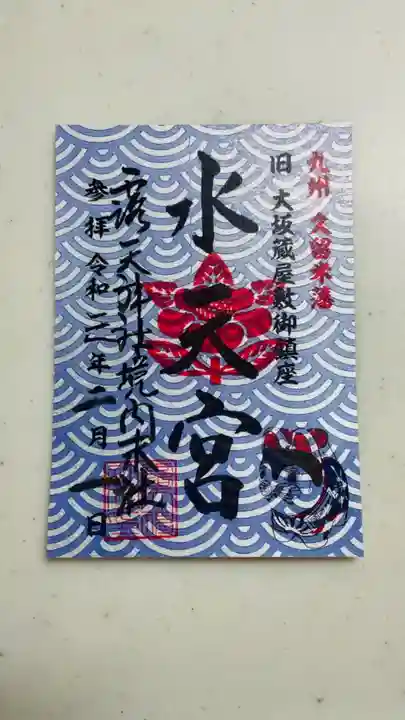 九州 久留米藩
旧 大坂蔵屋敷御鎮座
水天宮
露天神社境内末社
参拝 令和三年二月一日